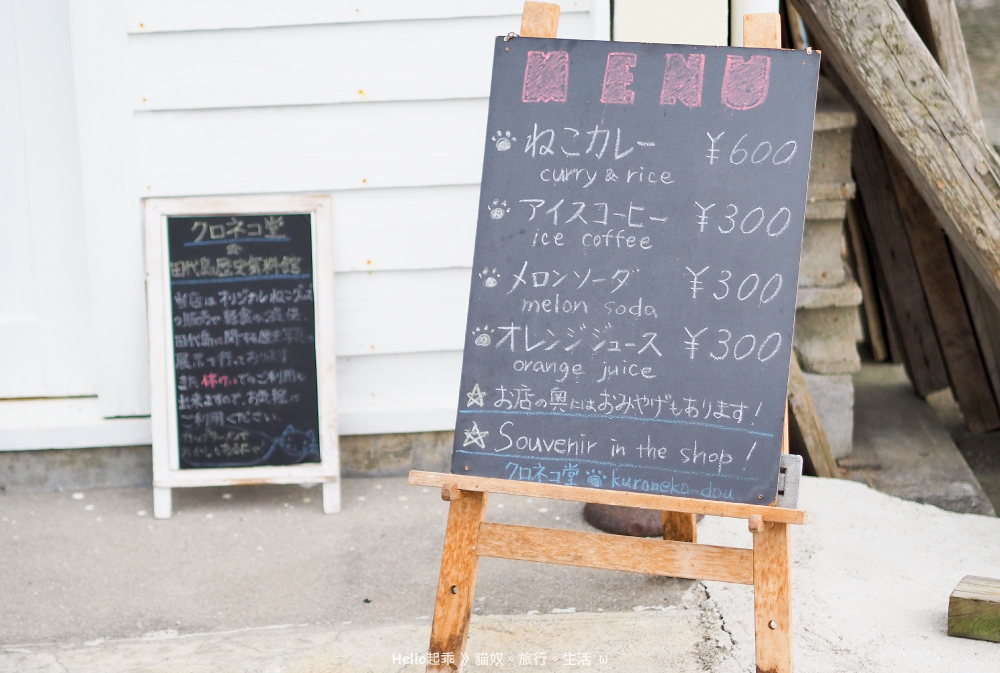 MENU
ねこカレー ¥600
curry & rice
アイスコーヒー ¥300
ice coffee
メロンソーダ ¥300
melon soda
オレンジジュース ¥300
orange juice
☆お店の奥にはおみやげもあります!
☆Souvenir in the shop!
クロネコ堂 kuroneko-dou
クロネコ堂
田代島歴史資料館
当店はオリジナルねこグッズ
の販売や軽食のご提供
田代島に関する歴史
展示も行っております
また休けい でのご利用も
出来ますので、お気軽に
ご利用ください
Hello起乖 》貓奴。旅行。生活 ω